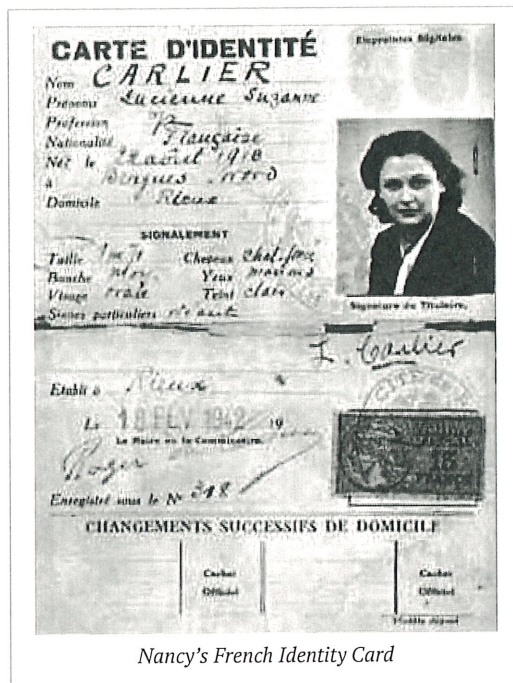 CARTE D'IDENTITÉ
Empreintes Digitales
Nom CARLIER
Prénoms Lucienne Suzanne
Profession
Nationalité Française
Née le avril 1910
à Bergues Nord
Domicile Rieux
SIGNALEMENT
Taille Cheveux
Bouche moy. Yeux marrons
Visage ovale Teint clair
Signes particuliers néant
Signature du Titulaire,
L. Carlier
Etabli à Rieux
Le 18 FEV 1942 19
Le Maire ou le Commissaire,
Roger
Enregistré sous le Nº 318
15
FRANCS
CHANGEMENTS SUCCESSIFS DE DOMICILE
Cachet Officiel
Cachet Officiel
Modèle déposé
Nancy's French Identity Card